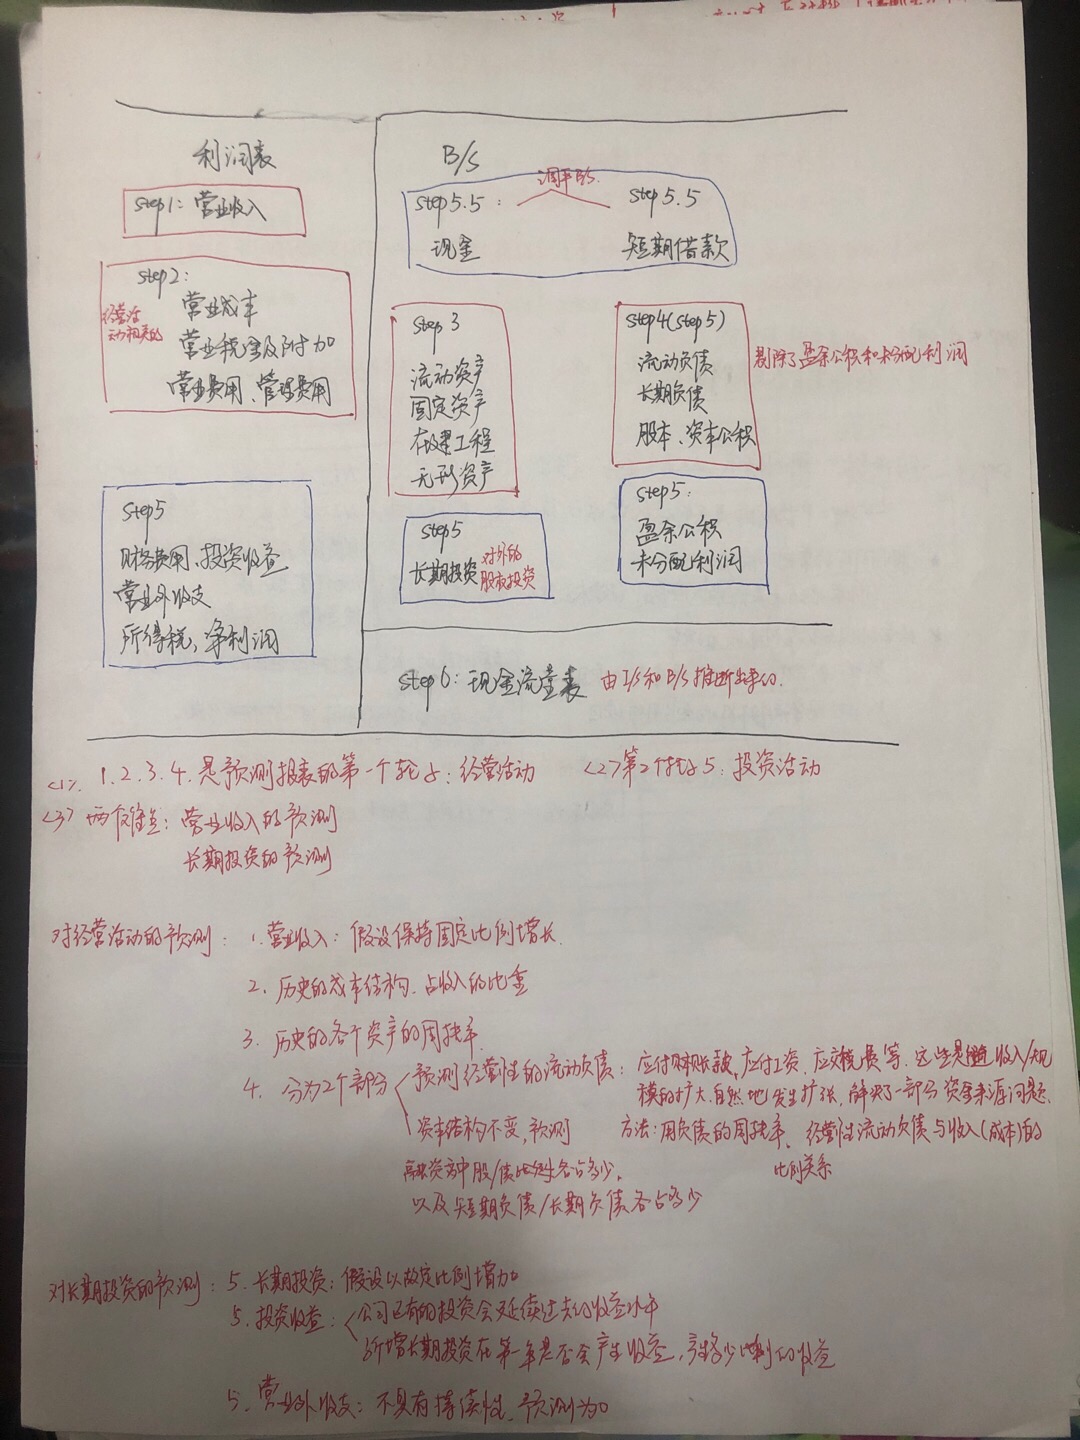 利润表
step1: 营业收入
step2:
经营活
动相关的
营业成本
营业税金及附加
营业费用、管理费用
step5
财务费用、投资收益
营业外收支
所得税、净利润
B/S
step5.5: 调平B/S. step5.5
现金 短期借款
step3
流动资产
固定资产
在建工程
无形资产
step4(step5)
流动负债
长期负债
股本、资本公积
剔除了盈余公积和未分配利润
step5
长期投资 对外的
股权投资
step5:
盈余公积
未分配利润
step6: 现金流量表 由I/S和B/S推断出来的.
<1>. 1.2.3.4.是预测报表的第一个轮子: 经营活动 <2>第2个轮子5: 投资活动
<3> 两个难点: 营业收入的预测
长期投资的预测
对经营活动的预测: 1.营业收入: 假设保持固定比例增长.
2. 历史的成本结构.占收入的比重
3. 历史的各个资产的周转率.
4. 分为2个部分 预测经营性的流动负债: 应付账款,应付工资.应交税费等.这些是随收入/规
模的扩大.自然地发生扩张,解决了一部分资金来源问题.
资本结构不变,预测 方法:用负债的周转率、经营性流动负债与收入(成本)的
比例关系
融资
中股/债
各占多少.
以及短期负债/长期负债各占多少
对长期投资的预测: 5. 长期投资: 假设以固定比例增加
5. 投资收益: 公司已有的投资会延续过去的收益水平
新增长期投资在第一年是否会产生收益,产生多少比例的收益
5. 营业外收支: 不具有持续性.预测为0